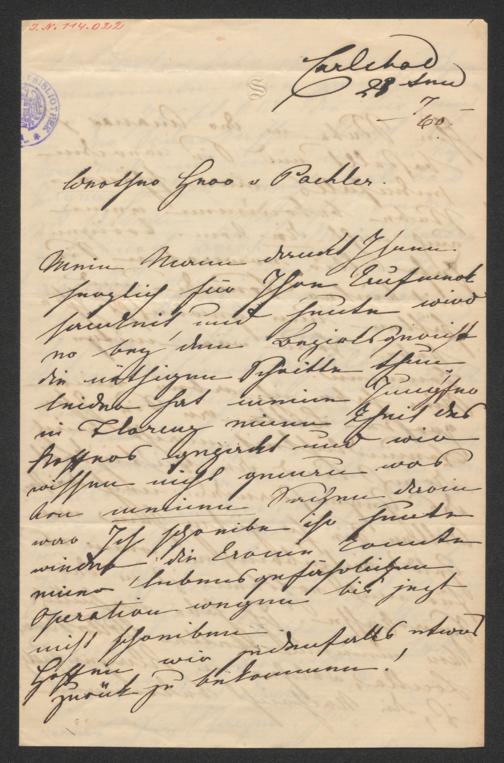 J.N. 114.022
Carlsbad
28 Juni
7
60
Werther Herr v Pachler.
Mein Mann dankt Ihnen
herzlich für Ihre Aufmerk
samkeit und heute wird
er bey dem Bezirksgericht
die nöthigen Schritte thun
leider hat meine Jungfer
in Florenz einen Theil des
Koffers gepackt und wir
wissen nicht genau was
von meinen Sachen darin
war Ich schreibe ihr heute
wieder die Arme konnte
einer lebensgefährlichen
Operation wegen bis jetzt
nicht schreiben
Hoffen wir jedenfalls etwas
zurück zu bekommen!